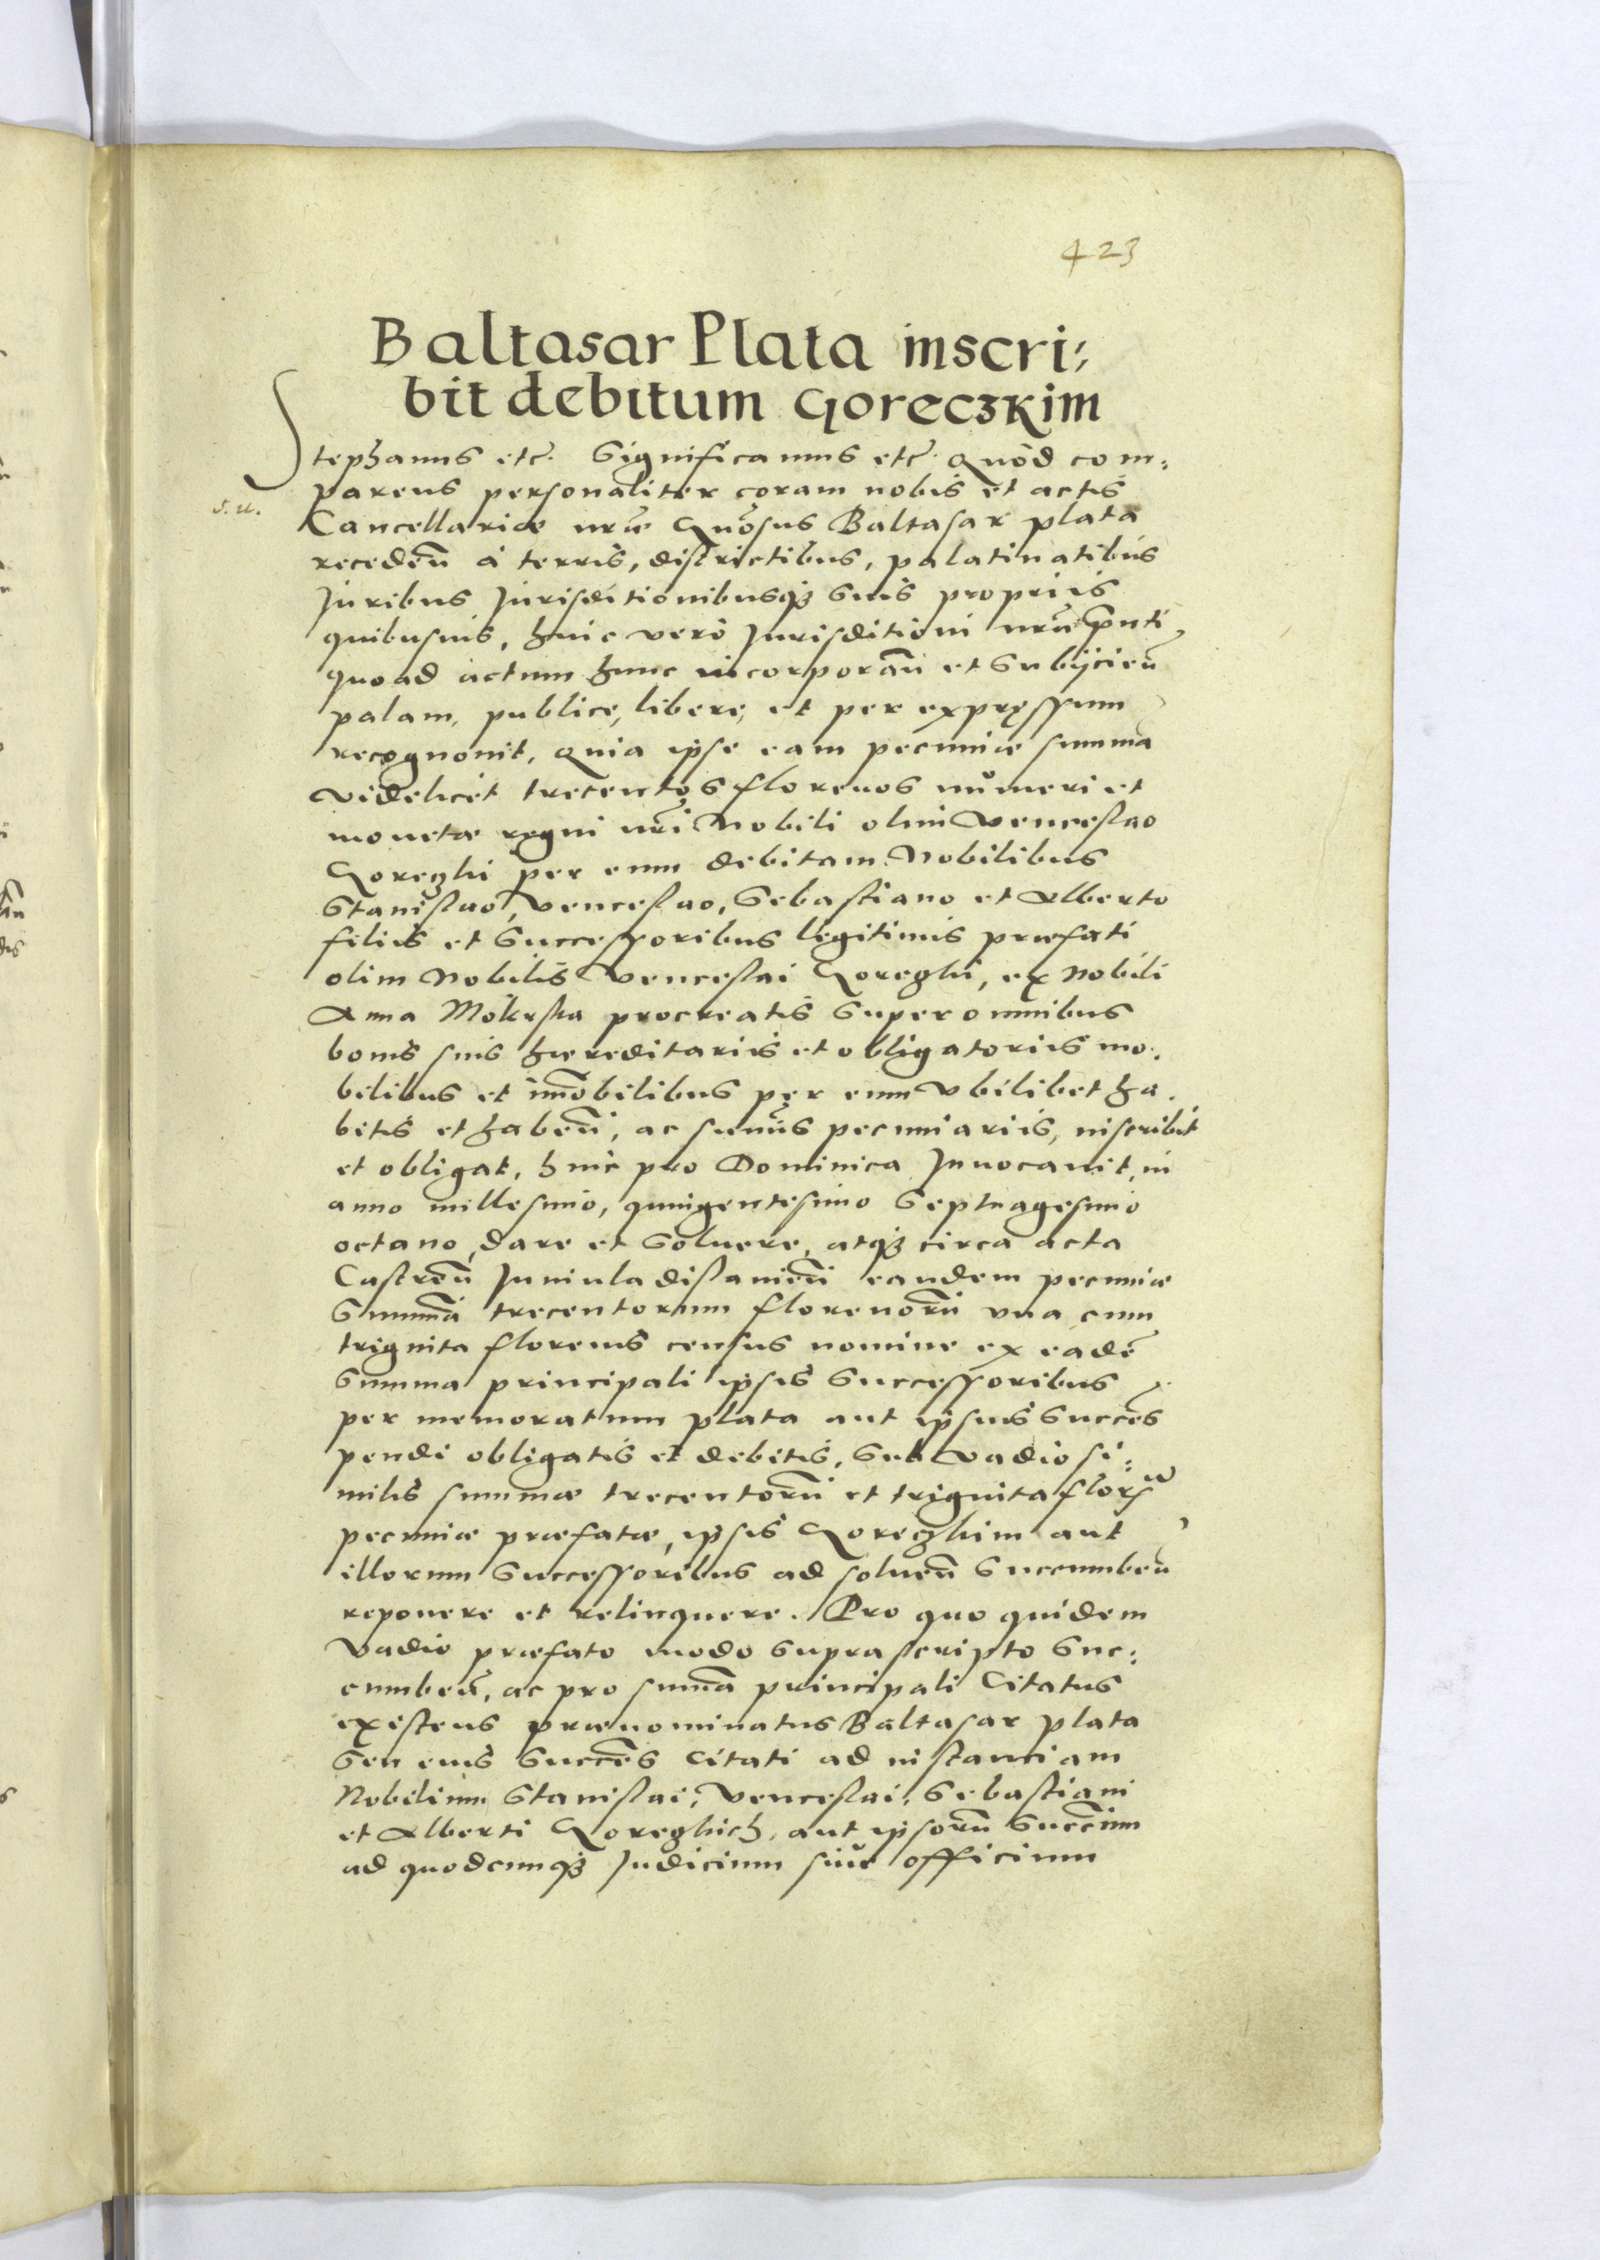 423
Baltasar Plata inscri:
bit debitum Goreczkim
Stephanus etc. Significamus etc. Quod com:
parens personaliter coram nobis et actis
s. u.
Cancellariae nrae Gnosus Baltasar Plata
recedeñ à terris, districtibus, palatinatibus
Juribus Jurisditionibusq3 suis propriis
quibusuis, huic vero Jurisditioni nrae pnti
quoad actum hunc incorporañ et subijcieñ
palam, publice, libere, et per expressum
recognouit, Quia ipse eam pecuniae summã
videlicet trecentos florenos numeri et
monetae regni nri Nobili olim Venceslao
Goreczki per eum debitam Nobilibus
Stanislao, Venceslao, Sebastiano et Alberto
filiis et Successoribus legitimis praefati
olim Nobilis Venceslai Goreczki, ex Nobili
Anna Mokrska procreatis Super omnibus
bonis suis haereditariis et obligatoriis mo:
bilibus et im̃obilibus per eum vbilibet ha:
bitis et habeñ, ac sum̃is pecuniariis, inscribit
et obligat, hinc pro Dominica Inuocauit, in
anno millesimo, quingentesimo Septuagesimo
octauo, dare et soluere, atq3 circa acta
Castreñ Juniuladislauieñ eandem pecuniae
Sum̃ã trecentorum florenorũ vna cum
triginta florenis census nomine ex eadẽ
Summa principali ipsis Successoribus
per memoratum Plata aut ipsius Succẽs
pendi obligatis et debitis, Sub vadio si:
milis summae trecentorũ et triginta flor
pecuniae praefatae, ipsis Goreczkim aut
illorum Successoribus ad solueñ Succumbeñ
reponere et relinquere. Pro quo quidem
vadio praefato modo suprascripto Suc:
cumbeñ, ac pro sum̃a principali Citatus
existens praenominatus Baltasar Plata
Seu eius Succẽs Citati ad instanciam
Nobilium Stanislai, Venceslai, Sebastiani
et Alberti Goreczkich, aut ipsorũ Succm
ad quodcunq3 Judicium siue officium